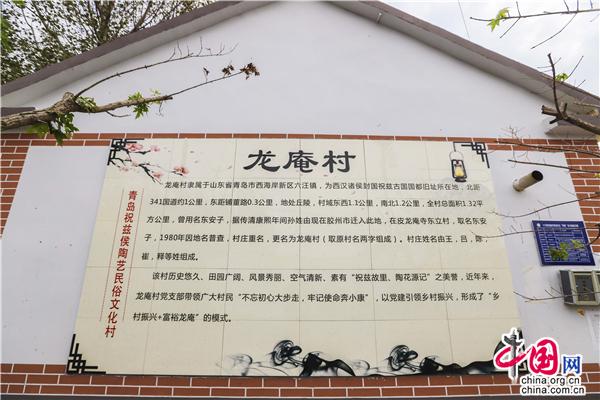 龙庵村
青岛祝兹侯陶艺民俗文化村
龙庵村隶属于山东省青岛市西海岸新区六汪镇，为西汉诸侯封国祝兹古国国都旧址所在地，北距
341国道约1公里，东距铺董路0.3公里，地处丘陵，村域东西1.1公里，南北1.2公里，全村总面积1.32平
方公里，曾用名东安子，据传清康熙年间孙姓由现在胶州市迁入此地，在皮龙庵寺东立村，取名东安
子，1980年因地名普查，村庄重名，更名为龙庵村（取原村名两字组成）。村庄姓名由王，吕，陈，
崔，释等姓组成。
该村历史悠久、田园广阔、风景秀丽、空气清新、素有“祝兹故里、陶花源记”之美誉，近年来，
龙庵村党支部带领广大村民“不忘初心大步走，牢记使命奔小康”，以党建引领乡村振兴，形成了“乡
村振兴+富裕龙庵”的模式。
中国网
china.org.cn
china.com.cn